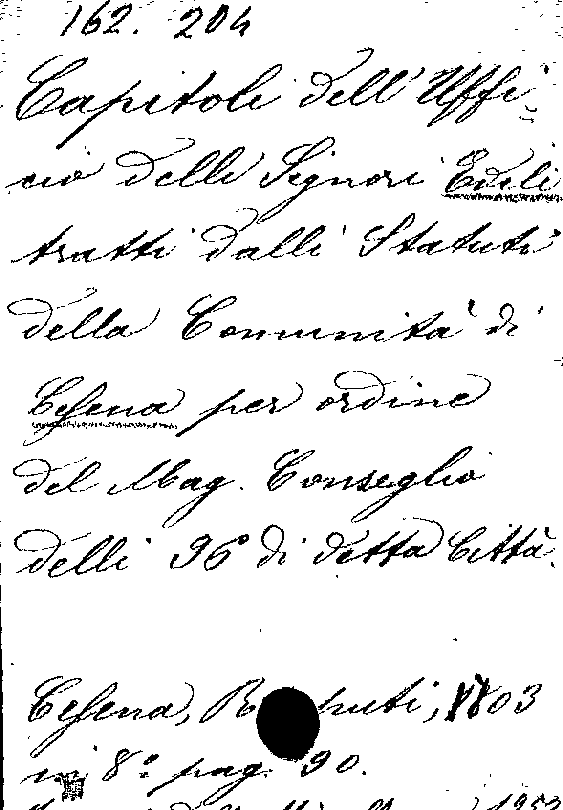 162. 204
Capitoli dell'Uffi-
cio delli Signori Edili
tratti dalli Statuti
della Comunità di
Cesena per ordine
del Mag. Conseglio
delli 96 di detta Città.
Cesena, 1803
in 8° pag. 90.